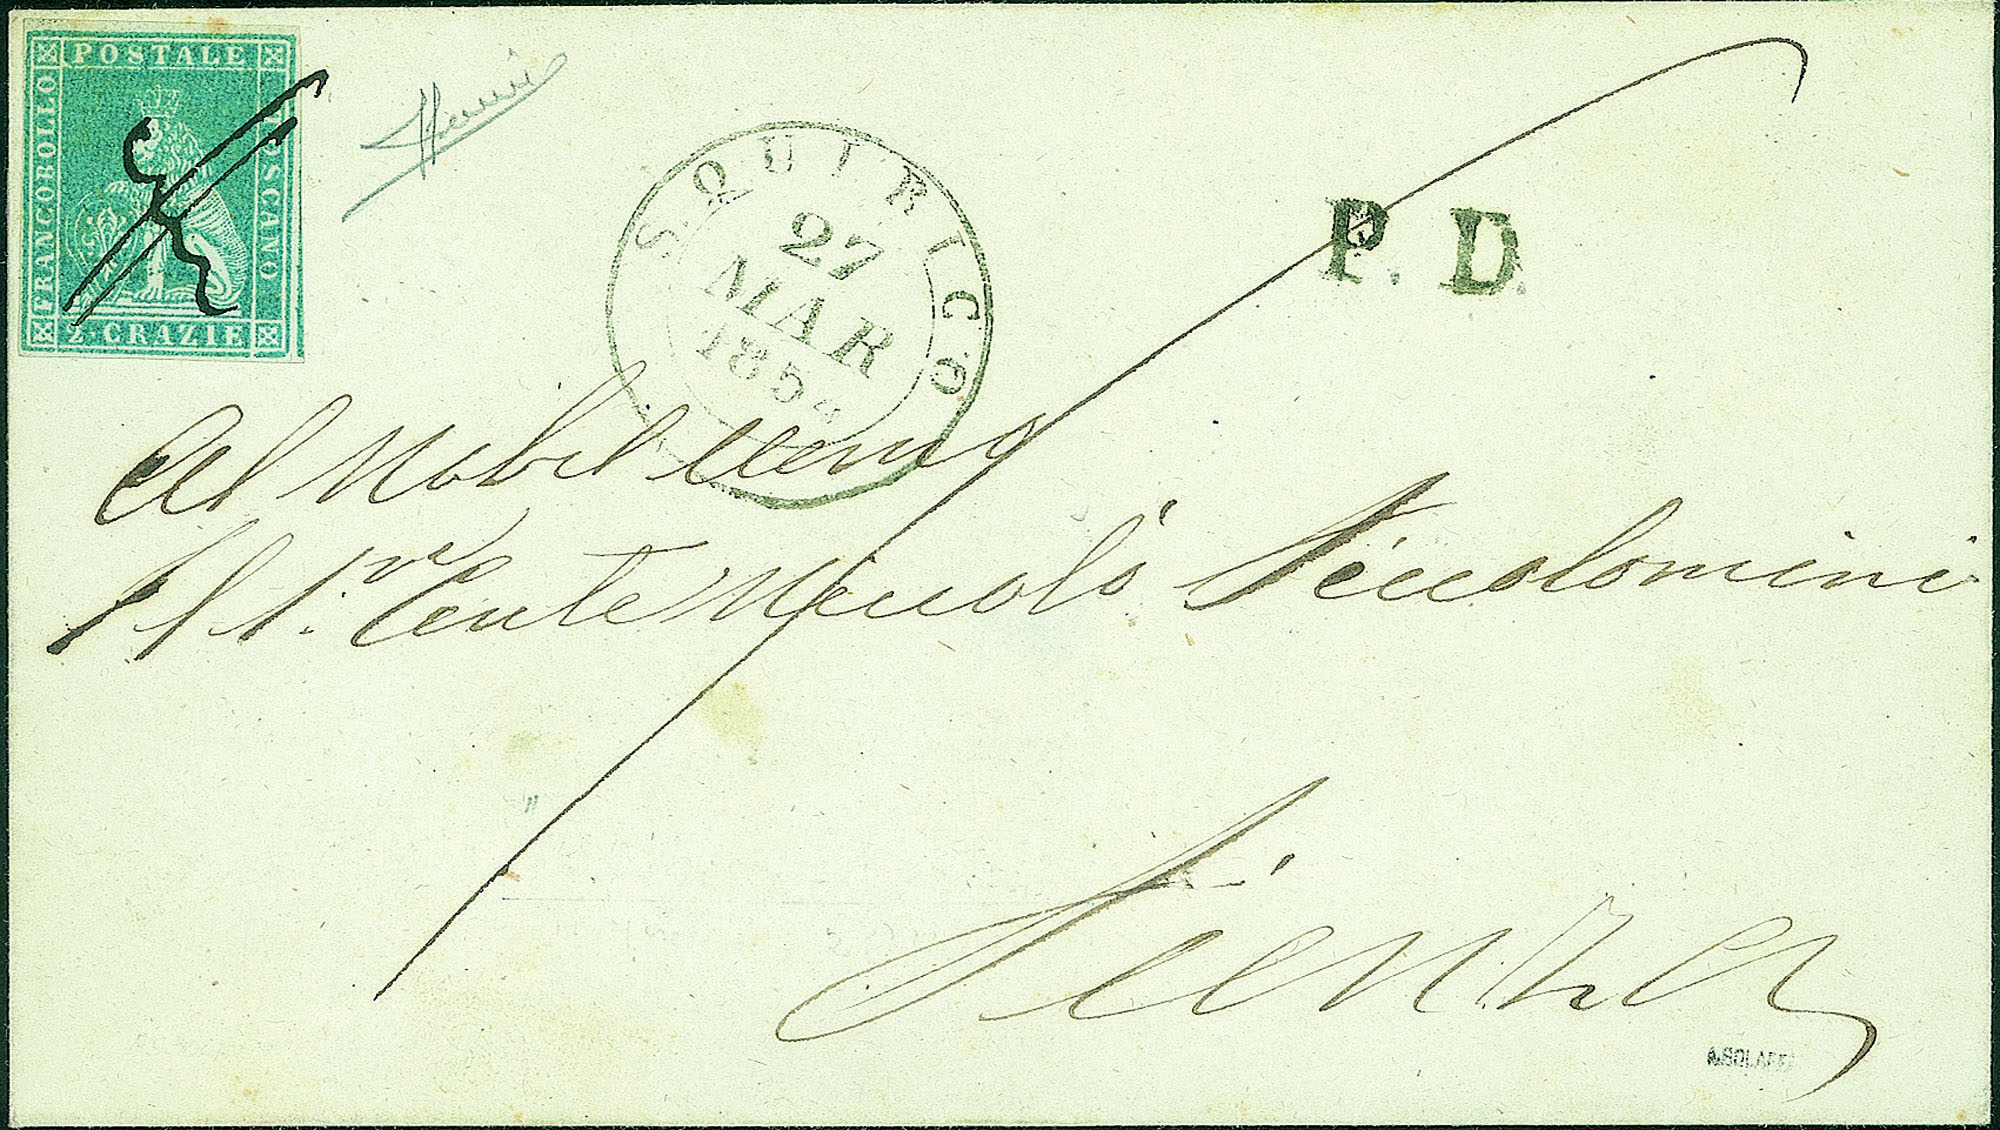 POSTALE
FRANCOBOLLO
TOSCANO
2·CRAZIE
S. QUIRICO
27
MAR
1854
P. D.
Al Nobil Uomo
Il Sr. Conte Niccolò Piccolomini
Pienza
A.BOLAFFI